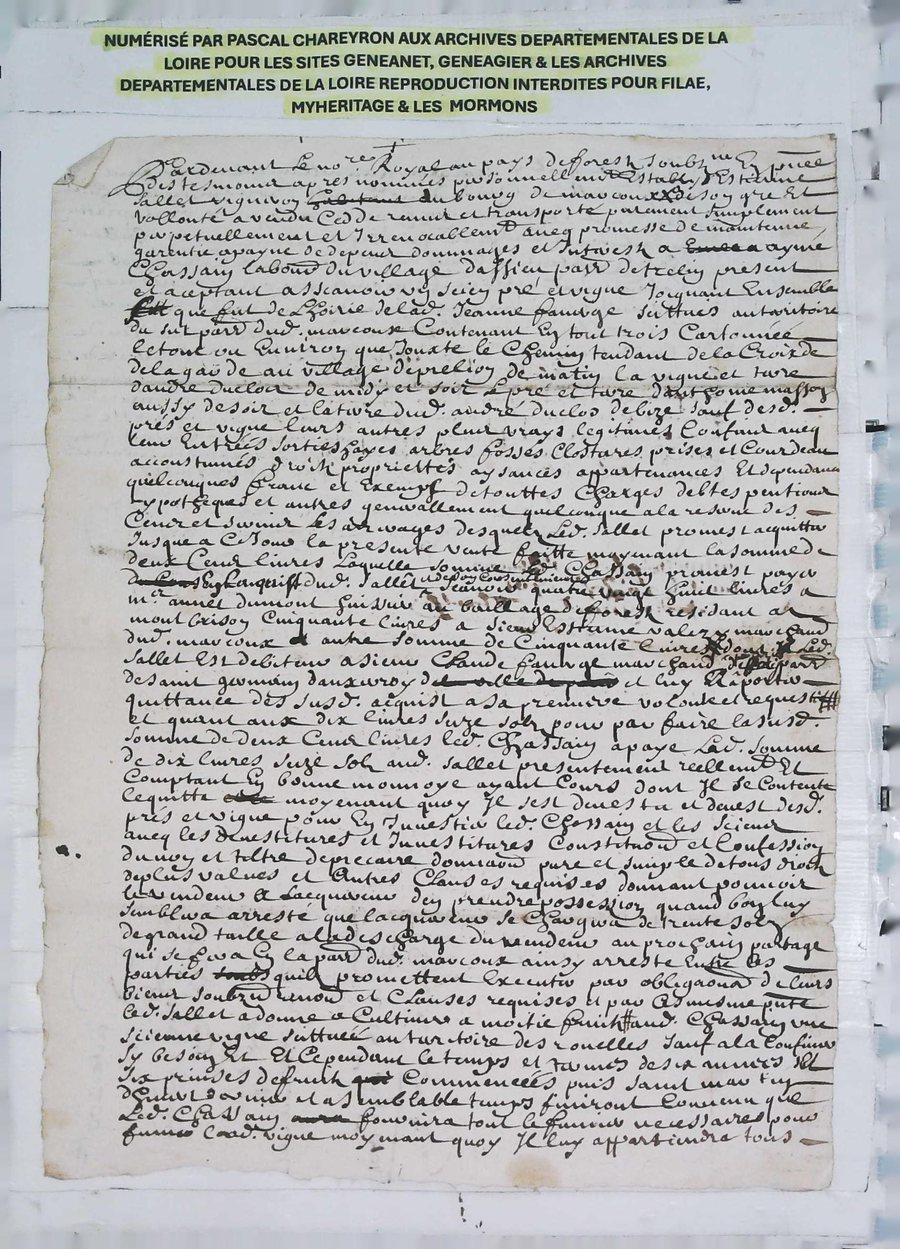 NUMÉRISÉ PAR PASCAL CHAREYRON AUX ARCHIVES DEPARTEMENTALES DE LA
LOIRE POUR LES SITES GENEANET, GENEAGIER & LES ARCHIVES
DEPARTEMENTALES DE LA LOIRE REPRODUCTION INTERDITES POUR FILAE,
MYHERITAGE & LES MORMONS
Pardevant Le nore Royal au pays de forest soubzne Et
des tesmoins apres nommés personnellemt Estably Estienne
Sallet vigneron du bourg de marcoux de son gré Et
vollonté a vendu Ceddé remis et transporté purement simplement
perpetuellement et Irrevocablemt avec promesse de maintenir
garentir a payne de depens dommages et Interest a aymé
Chassain labour du village parr de trelin present
et aceptant asscavoir un scien pré et vigne Joignant Ensemble
que fut de de lad. Jeanne faurge scittués au territoire
du parr dud. marcoux Contenant En tout trois Cartonnée
le tout ou Environ que Jouxte le Chemin tendant de la Croix de
de la au village de matin la vigne et terre
d'andré duclos de midy et soir le pré et terre d'anthoine masson
aussy de soir et la terre dud. andré duclos de bize sauf desd.
prés et vigne leurs autres plus vrays legitimes Confins avec
leur Entrées sorties hayes arbres fossés Clostures prises et Cours deau
accoustumés droits proprietés aysances appartenances Et dependances
quelconques franc et Exempt de touttes Charges debtes pentions
ypotheques et autres generallement quelconque a la reserve des
Cens et servis Les arrerages desquels Led. Sallet promest acquitter
Jusque a Ce Jour la presente vente faitte moyenant la somme de
deux Cens livres Laquelle somme led. Chassain promest payer
dud. Sallet de son Consentement scavoir quatre vingt huit livres a
mr. annet dumont huissier au baillage de forest residant a
mont brison Cinquante livres a sieur Estienne valezy marchand
dud. marcoux autre somme de Cinquante livres dont Led.
Sallet Est debiteur a sieur Claude faurge marchand parr
de saint germain et luy Raporter
quittance des susd. acquist a sa premiere volonté et requestte
et quant aux dix livres seize solz pour par faire la susd.
somme de deux Cens livres led. Chassain a payé Lad. somme
de dix livres seize solz aud. Sallet presentement reellemt Et
Comptant En bonne monnoye ayant Cours dont Il se Contente
le quitte moyenant quoy Il s'est devestu et devest desd.
prés et vigne pour En Investir led. Chassain et les sciens
avec les devestitures et Investitures Constitution et Confession
du nom et tiltre de precaire donnation pure et simple de tous droits
de plus values et Autres Clauses requises donnant pouvoir
le vendeur A Lacquereur den prendre possession quand bon luy
semblera arresté que lacquereur se Chargera de trente solz
de grand taille a la descharge du vendeur au prochain partage
qui se fera En la parr dud. marcoux ainsy arresté Entre les
parties quils promettent Executer par obligaon de leurs
biens soubzn renon et Clauses requises et par Ces mesme pnte
led. Sallet a donné a Cultiver a moitié fruit aud. Chassain une
scienne vigne scittuée au territoire des rouelles sauf a la Confiner
sy besoin Est Et Cependant le temps et termes de six années Et
six prinses de fruits Commencés puis saint martin
d'hiver dernier et a semblable temps finiront Convenu que
Led. Chassain fournira tout le fumier necessaires pour
fumer lad. vigne moyenant quoy Il luy appartiendra tous